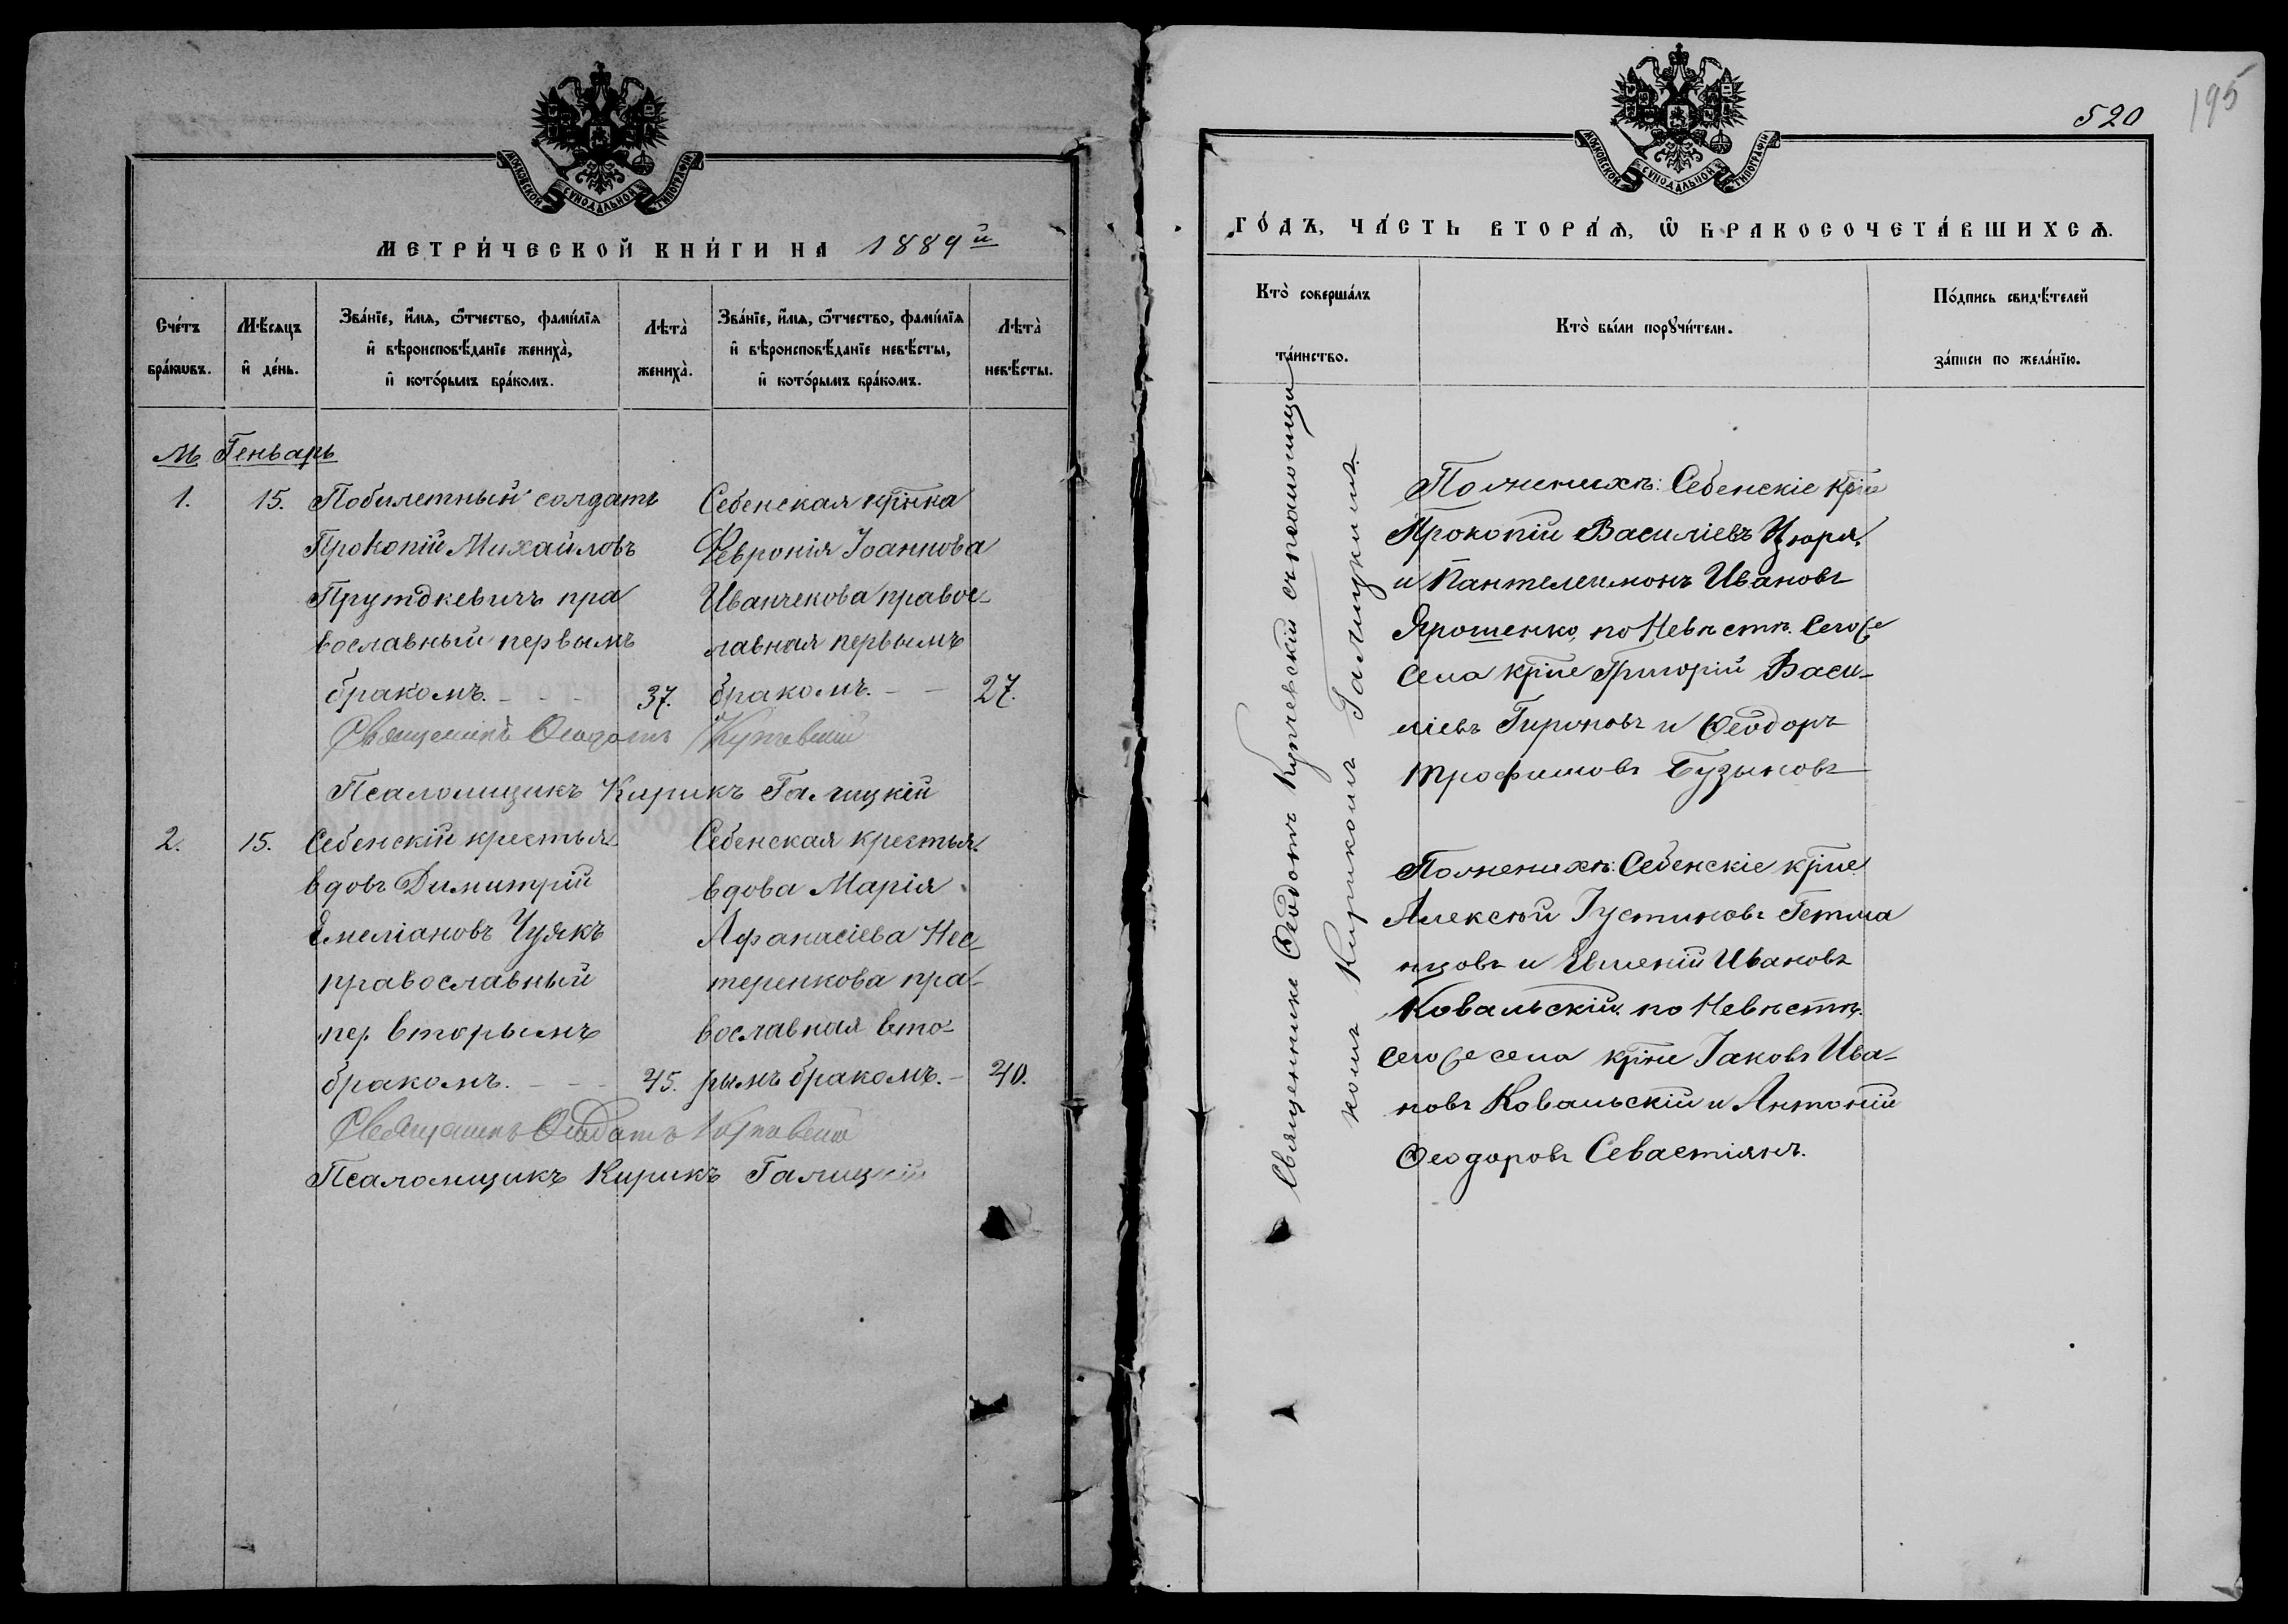 МОСКОВСКОЙ СУНОДАЛЬНОЙ ТИПОГРАФІИ
МЕТРИ́ЧЕСКОЙ КНИ́ГИ НА 1889й
Сче́тъ бра́кѡвъ.
Мѣ́сяцъ и҆ де́нь.
Зва́нїе, и҆́мѧ, ѻ҆́тчество, фами́лїѧ
и҆ вѣроисповѣ́данїе жениха̀,
и҆ кото́рымъ бра́комъ.
Лѣта̀ жениха̀.
Зва́нїе, и҆́мѧ, ѻ҆́тчество, фами́лїѧ
и҆ вѣроисповѣ́данїе невѣ́сты,
и҆ кото́рымъ бра́комъ.
Лѣта̀ невѣ́сты.
М Генварь
1. 15. Побилетный солдатъ
Прокопій Михайловъ
Прутдкевичъ пра
вославный первымъ
бракомъ. - - - 37.
Себенская крнка
Февронія Іоаннова
Иванчекова правос-
лавная первымъ
бракомъ. - - 27.
Священникъ Ѳеодотъ Купчевскій
Псаломщикъ Кирикъ Галицкій
2. 15. Себенскій крестья.
вдовъ Димитрій
Емеліановъ Чудкъ
православный
пер вторымъ
бракомъ. - - - 45.
Себенская крестья.
вдова Марія
Афанасіева Нес-
теренкова пра-
вославная вто-
рымъ бракомъ. - 40.
Священникъ Ѳеодотъ Купчевскій
Псаломщикъ Кирикъ Галицкій
195
520
МОСКОВСКОЙ СУНОДАЛЬНОЙ ТИПОГРАФІИ
ГО́ДЪ, ЧА́СТЬ ВТОРА́Ѧ, Ѡ҆ БРАКОСОЧЕТА́ВШИХСѦ.
Кто̀ соверша́лъ
та́инство.
Кто̀ бы́ли порꙋчи́тели.
По́дпись свидѣ́телей
за́писи по жела́нїю.
Священникъ Ѳеодотъ Купчевскій съ псаломщи
комъ Кирикомъ Галицкимъ.
По женихѣ: Себенскіе кріне
Прокопій Василіевъ Цюря.
и Пантелеимонъ Ивановъ
Ярошенко, по Невѣстѣ. Сегоже
села кріне Григорій Васи-
ліевъ Гироновъ и Ѳеодоръ
Трофимовъ Бузыновъ
По женихѣ: Себенскіе кріне
Алексѣй Іустиновъ Гетма
нцовъ и Евменій Ивановъ
Ковальскій. по Невѣстѣ.
сегоже села кріне Іаковъ Ива-
новъ Ковальскій и Антоній
Ѳеодоровъ Севастіянъ.